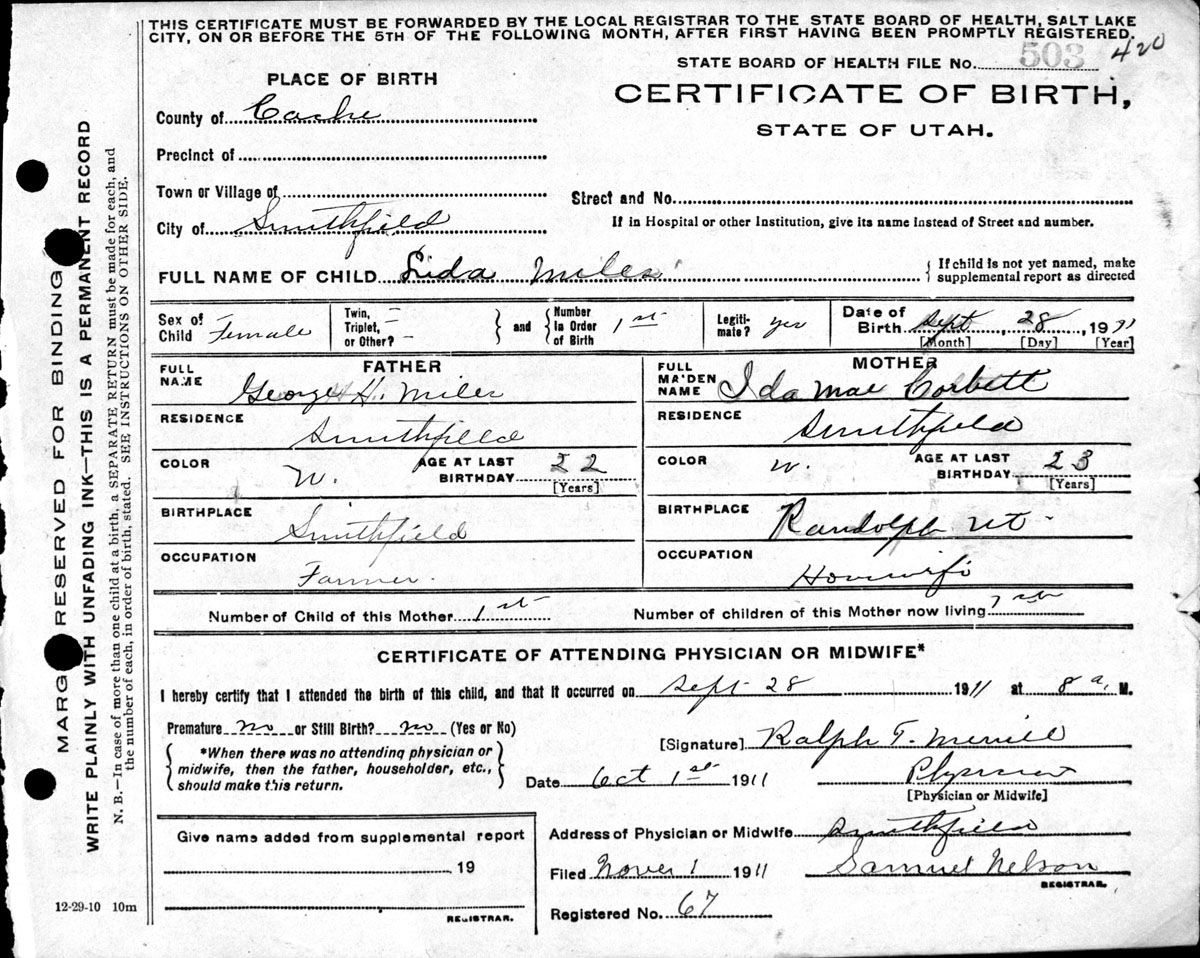 THIS CERTIFICATE MUST BE FORWARDED BY THE LOCAL REGISTRAR TO THE STATE BOARD OF HEALTH, SALT LAKE
CITY, ON OR BEFORE THE 5TH OF THE FOLLOWING MONTH, AFTER FIRST HAVING BEEN PROMPTLY REGISTERED.
STATE BOARD OF HEALTH FILE No. 503 420
PLACE OF BIRTH
CERTIFICATE OF BIRTH,
STATE OF UTAH.
County of Cache
Precinct of
Town or Village of
Street and No.
City of Smithfield
If in Hospital or other Institution, give its name instead of Street and number.
FULL NAME OF CHILD Lida Miles
{ If child is not yet named, make
supplemental report as directed
Sex of Child Female
Twin, Triplet, or Other? –
and
Number in Order of Birth 1st
Legitimate? yes
Date of Birth Sept, 28, 1911
[Month] [Day] [Year]
FATHER
FULL NAME George H. Miles
RESIDENCE Smithfield
COLOR W.
AGE AT LAST BIRTHDAY 22
[Years]
BIRTHPLACE Smithfield
OCCUPATION Farmer.
MOTHER
FULL MAIDEN NAME Ida Mae Corbett
RESIDENCE Smithfield
COLOR W.
AGE AT LAST BIRTHDAY 23
[Years]
BIRTHPLACE Randolph Ut
OCCUPATION Housewife
Number of Child of this Mother 1st
Number of children of this Mother now living
CERTIFICATE OF ATTENDING PHYSICIAN OR MIDWIFE*
I hereby certify that I attended the birth of this child, and that it occurred on Sept 28 1911 at 8 a. M.
Premature no or Still Birth? no (Yes or No)
{ *When there was no attending physician or
midwife, then the father, householder, etc.,
should make this return. }
[Signature] Ralph T. Merrill
Date Oct 1st 1911
Physician
[Physician or Midwife]
Give name added from supplemental report
, 19
REGISTRAR.
Address of Physician or Midwife Smithfield
Filed Nover 1 1911 Samuel Nelson
REGISTRAR.
Registered No. 67
12-29-10 10m
MARG RESERVED FOR BINDING
WRITE PLAINLY WITH UNFADING INK—THIS IS A PERMANENT RECORD
N. B.—In case of more than one child at a birth, a SEPARATE RETURN must be made for each, and
the number of each, in order of birth, stated. SEE INSTRUCTIONS ON OTHER SIDE.